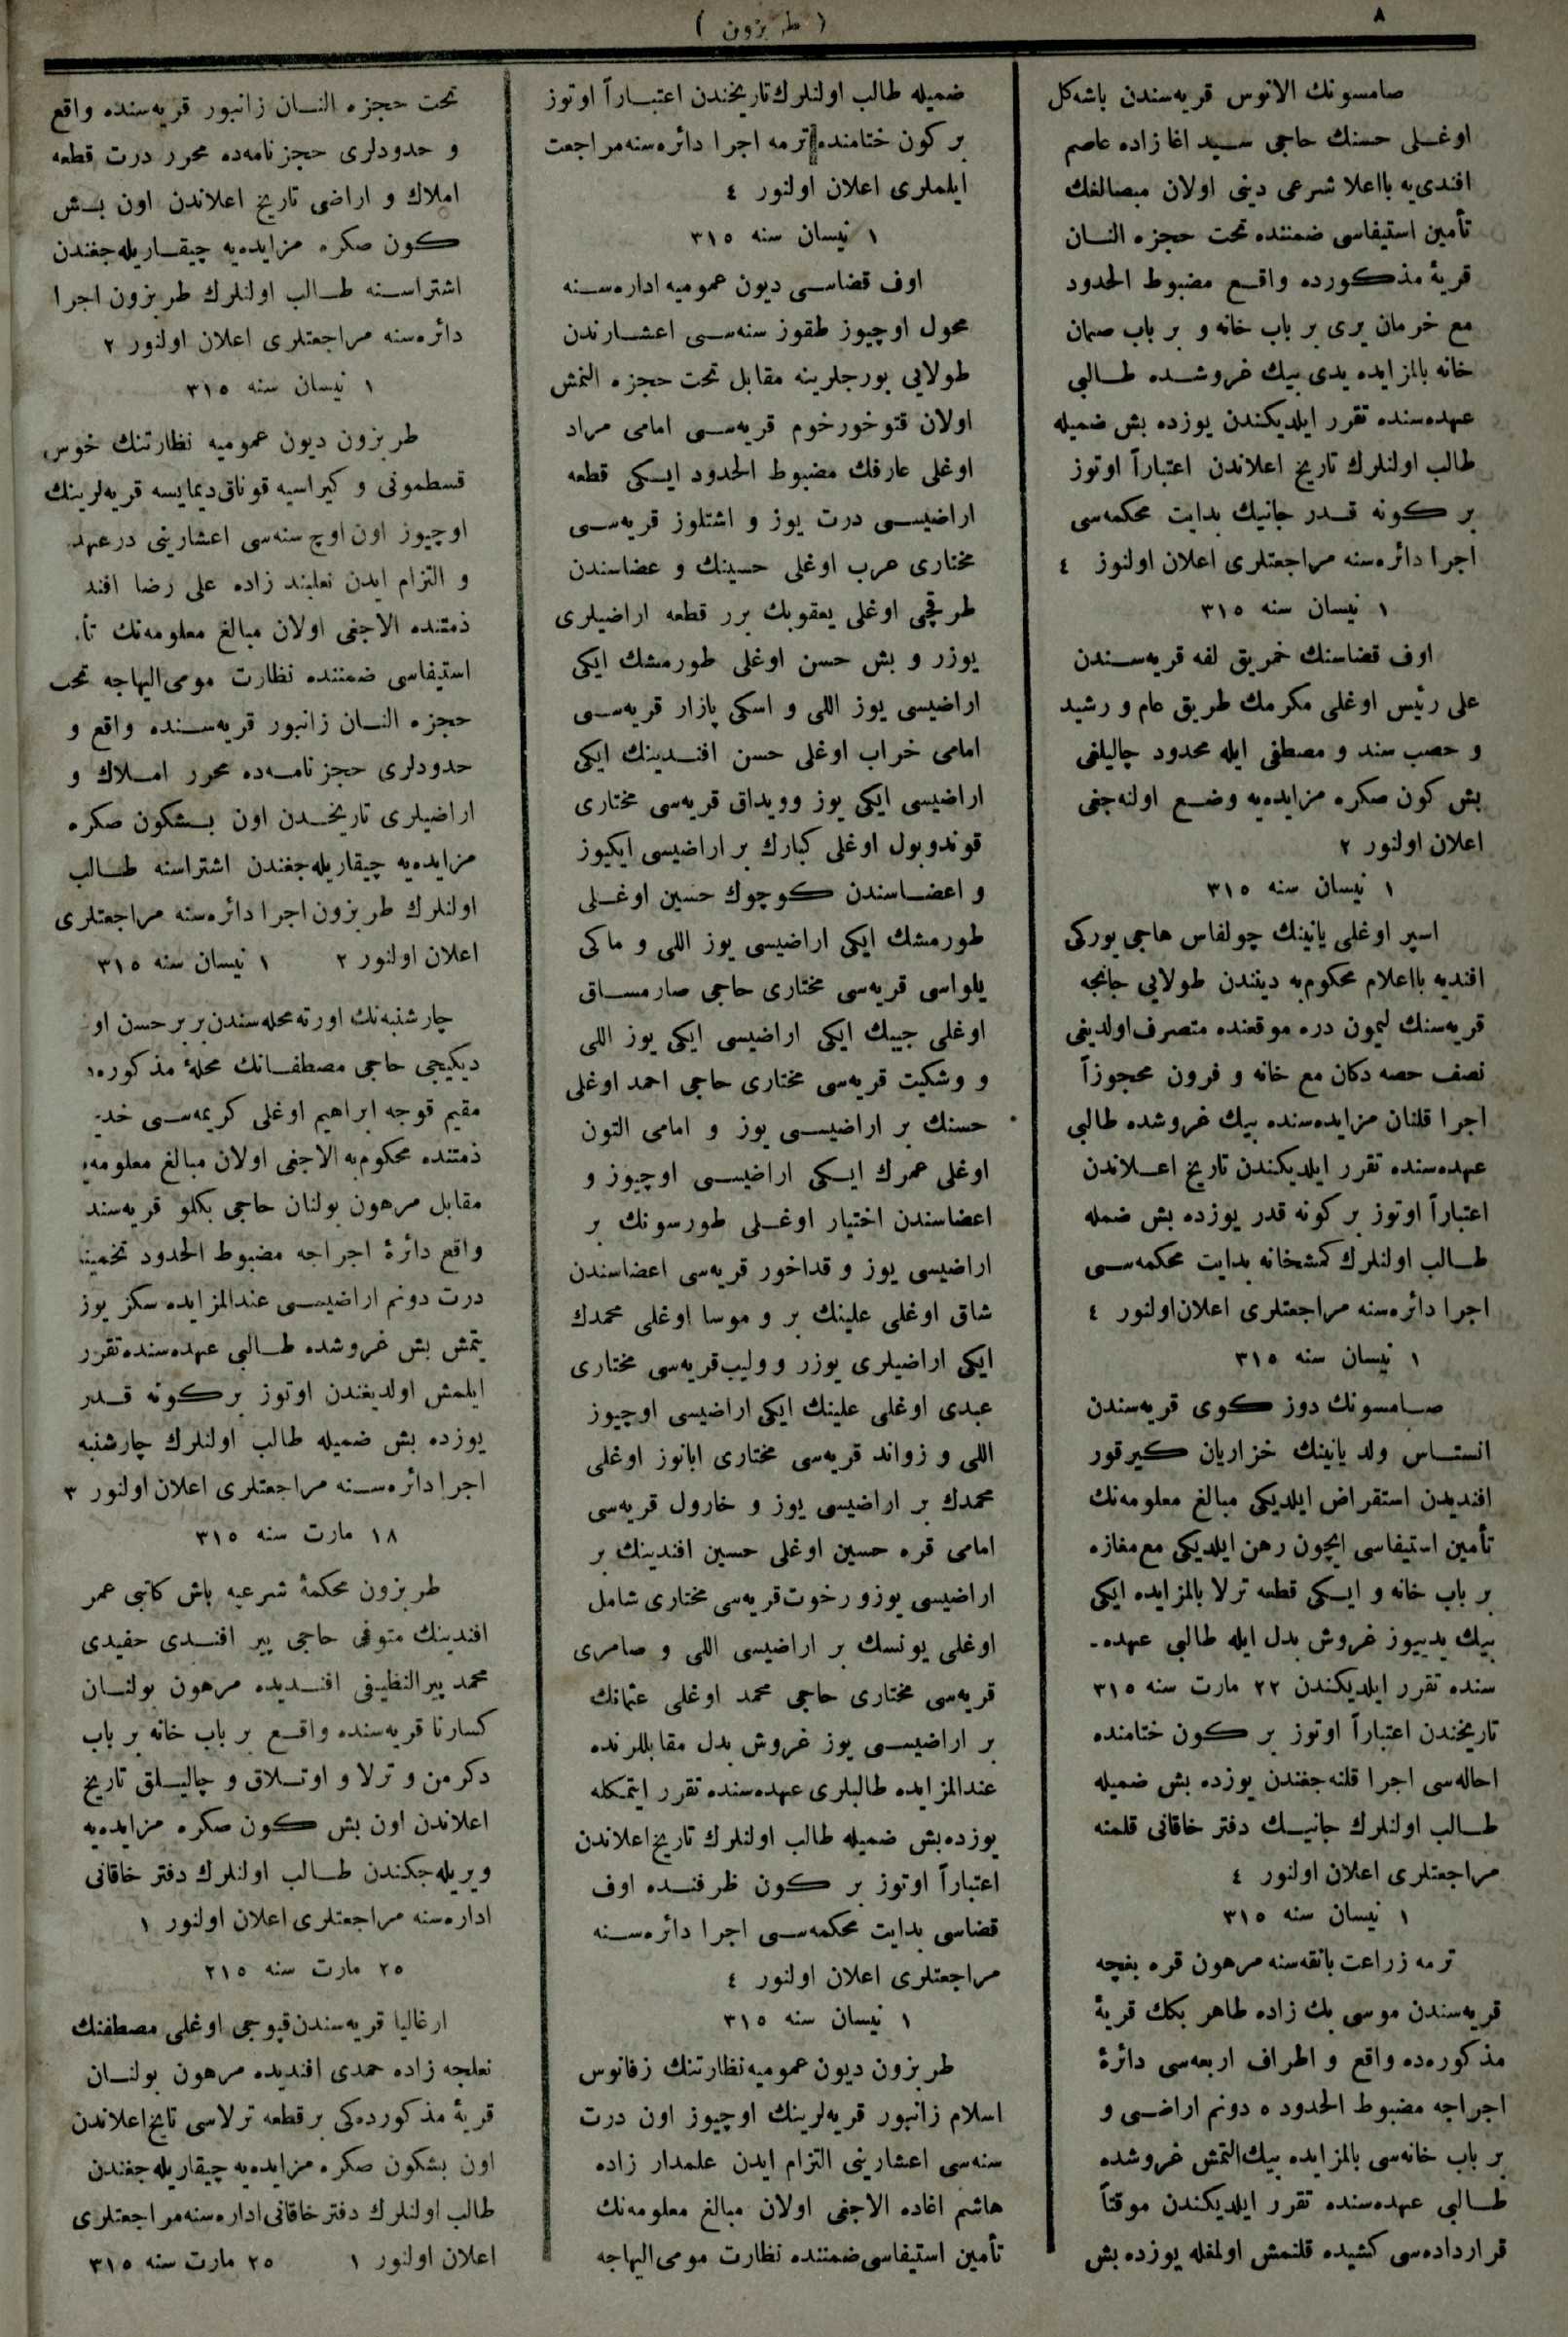 ٨
( طربزون )
صامسونك الانوس قریه‌سندن باشه‌كل
اوغلی حسنك حاجی سید اغا زاده عاصم
افندی‌یه بااعلا شرعی دینی اولان مبصالغك
تأمین استیفاسی ضمننده تحت حجزه النان
قریهٔ مذكورده واقع مضبوط الحدود
مع خرمان یری بر باب خانه و بر باب صمان
خانه بالمزایده یدی بیك غروشده طالبی
عهده‌سنده تقرر ایلدیكندن یوزده بش ضمیله
طالب اولنلرك تاریخ اعلاندن اعتباراً اوتوز
بر كونه قدر جانیك بدایت محكمه‌سی
اجرا دائره‌سنه مراجعتلری اعلان اولنوز ٤
١ نیسان سنه ٣١٥
اوف قضاسنك خمریق لفه قریه‌سندن
علی رئیس اوغلی مكرمك طریق عام و رشید
و حصب سند و مصطفی ایله محدود چالیلغی
بش كون صكره مزایده‌یه وضع اولنه‌جغی
اعلان اولنور ٢
١ نیسان سنه ٣١٥
اسپر اوغلی یانینك چولفاس هاجی یوركی
افندیه بااعلام محكوم‌به دینندن طولایی جانجه
قریه‌سنك لیمون دره موقعنده متصرف اولدیغی
نصف حصه دكان مع خانه و فرون محجوزاً
اجرا قلنان مزایده‌سنده بیك غروشده طالبی
عهده‌سنده تقرر ایلدیكندن تاریخ اعلاندن
اعتباراً اوتوز بر كونه قدر یوزده بش ضمله
طالب اولنلرك كمشخانه بدایت محكمه‌سی
اجرا دائره‌سنه مراجعتلری اعلان اولنور ٤
١ نیسان سنه ٣١٥
صامسونك دوز كوی قریه‌سندن
انستاس ولد یانینك خزاریان كیرقور
افندیدن استقراض ایلدیكی مبالغ معلومه‌نك
تأمین استیفاسی ایچون رهن ایلدیكی مع مغازه
بر باب خانه و ایكی قطعه ترلا بالمزایده ایكی
بیك یدییوز غروش بدل ایله طالبی عهده‌-
سنده تقرر ایلدیكندن ٢٢ مارت سنه ٣١٥
تاریخندن اعتباراً اوتوز بر كون ختامنده
احاله‌سی اجرا قلنه‌جغندن یوزده بش ضمیله
طالب اولنلرك جانیك دفتر خاقانی قلمنه
مراجعتلری اعلان اولنور ٤
١ نیسان سنه ٣١٥
ترمه زراعت بانقه‌سنه مرهون قره بغچه
قریه‌سندن موسی بك زاده طاهر بكك قریهٔ
مذكوره‌ده واقع و اطراف اربعه‌سی دائرهٔ
اجراجه مضبوط الحدود ٥ دونم اراضی و
بر باب خانه‌سی بالمزایده بیك التمش غروشده
طالبی عهده‌سنده تقرر ایلدیكندن موقتاً
قرارداده‌سی كشیده قلنمش اولمغله یوزده بش
ضمیله طالب اولنلرك تاریخندن اعتباراً اوتوز
بر كون ختامنده ترمه اجرا دائره‌سنه مراجعت
ایلملری اعلان اولنور ٤
١ نیسان سنه ٣١٥
اوف قضاسی دیون عمومیه اداره‌سنه
محول اوچیوز طقوز سنه‌سی اعشارندن
طولایی بورجلرینه مقابل تحت حجزه النمش
اولان قتوخورخوم قریه‌سی امامی مراد
اوغلی عارفك مضبوط الحدود ایكی قطعه
اراضیسی درت یوز و اشتلوز قریه‌سی
مختاری عرب اوغلی حسینك و عضاسندن
طرقجی اوغلی یعقوبك برر قطعه اراضیلری
یوزر و بش حسن اوغلی طورمشك ایكی
اراضیسی یوز اللی و اسكی پازار قریه‌سی
امامی خراب اوغلی حسن افندینك ایكی
اراضیسی ایكی یوز وویداق قریه‌سی مختاری
قوندوبول اوغلی كبارك بر اراضیسی ایكیوز
و اعضاسندن كوچوك حسین اوغلی
طورمشك ایكی اراضیسی یوز اللی و ماكی
یلواسی قریه‌سی مختاری حاجی صارمساق
اوغلی جیبك ایكی اراضیسی ایكی یوز اللی
و وشكیت قریه‌سی مختاری حاجی احمد اوغلی
حسنك بر اراضیسی یوز و امامی التون
اوغلی عمرك ایكی اراضیسی اوچیوز و
اعضاسندن اختیار اوغلی طورسونك بر
اراضیسی یوز و قداخور قریه‌سی اعضاسندن
شاق اوغلی علینك بر و موسا اوغلی محمدك
ایكی اراضیلری یوزر و ولیب قریه‌سی مختاری
عبدی اوغلی علینك ایكی اراضیسی اوچیوز
اللی و زواند قریه‌سی مختاری ابانوز اوغلی
محمدك بر اراضیسی یوز و خارول قریه‌سی
امامی قره حسین اوغلی حسین افندینك بر
اراضیسی یوز و رخوت قریه‌سی مختاری شامل
اوغلی یونسك بر اراضیسی اللی و صامری
قریه‌سی مختاری حاجی محمد اوغلی عثمانك
بر اراضیسی یوز غروش بدل مقابللرنده
عندالمزایده طالبلری عهده‌سنده تقرر ایتمكله
یوزده‌بش ضمیله طالب اولنلرك تاریخ اعلاندن
اعتباراً اوتوز بر كون ظرفنده اوف
قضاسی بدایت محكمه‌سی اجرا دائره‌سنه
مراجعتلری اعلان اولنور ٤
١ نیسان سنه ٣١٥
طربزون دیون عمومیه نظارتنك زفانوس
اسلام زانبور قریه‌لرینك اوچیوز اون درت
سنه‌سی اعشارینی التزام ایدن علمدار زاده
هاشم اغاده الاجغی اولان مبالغ معلومه‌نك
تأمین استیفاسی ضمننده نظارت مومی‌الیهاجه
تحت حجزه النان زانبور قریه‌سنده واقع
و حدودلری حجزنامه‌ده محرر درت قطعه
املاك و اراضی تاریخ اعلاندن اون بش
كون صكره مزایده‌یه چیقاریله‌جغندن
اشتراسنه طالب اولنلرك طربزون اجرا
دائره‌سنه مراجعتلری اعلان اولنور ٢
١ نیسان سنه ٣١٥
طربزون دیون عمومیه نظارتنك خوس
قسطمونی و كیراسیه قوناق‌دیمایسه قریه‌لرینك
اوچیوز اون اوچ سنه‌سی اعشارینی درعهد
و التزام ایدن نعلبند زاده علی رضا افند
ذمتنده الاجغی اولان مبالغ معلومه‌نك تأ
استیفاسی ضمننده نظارت مومی‌الیهاجه تحت
حجزه النان زانبور قریه‌سنده واقع و
حدودلری حجزنامه‌ده محرر املاك و
اراضیلری تاریخدن اون بشكون صكره
مزایده‌یه چیقاریله‌جغندن اشتراسنه طالب
اولنلرك طربزون اجرا دائره‌سنه مراجعتلری
اعلان اولنور ٢ ١ نیسان سنه ٣١٥
چارشنبه‌نك اورته محله‌سندن بربر حسن او
دیكیجی حاجی مصطفانك محلهٔ مذكوره
مقیم قوجه ابراهیم اوغلی كریمه‌سی خد
ذمتنده محكوم‌به الاجغی اولان مبالغ معلومه
مقابل مرهون بولنان حاجی بكلو قریه‌سند
واقع دائرهٔ اجراجه مضبوط الحدود تخمیناً
درت دونم اراضیسی عندالمزایده سكز یوز
یتمش بش غروشده طالبی عهده‌سنده تقرر
ایلمش اولدیغندن اوتوز بر كونه قدر
یوزده بش ضمیله طالب اولنلرك چارشنبه
اجرا دائره‌سنه مراجعتلری اعلان اولنور ٣
١٨ مارت سنه ٣١٥
طربزون محكمهٔ شرعیه باش كاتبی عمر
افندینك متوفی حاجی پیر افندی حفیدی
محمد پیر النظیفی افندیده مرهون بولنان
كسارنا قریه‌سنده واقع بر باب خانه بر باب
دكرمن و ترلا و اوتلاق و چالیلق تاریخ
اعلاندن اون بش كون صكره مزایده‌یه
ویریله‌جكندن طالب اولنلرك دفتر خاقانی
اداره‌سنه مراجعتلری اعلان اولنور ١
٢٥ مارت سنه ٢١٥
ارغالیا قریه‌سندن قپوجی اوغلی مصطفنك
نعلجه زاده حمدی افندیده مرهون بولنان
قریهٔ مذكورده‌كی بر قطعه ترلاسی تایخ اعلاندن
اون بشكون صكره مزایده‌یه چیقاریله‌جغندن
طالب اولنلرك دفتر خاقانی اداره‌سنه مراجعتلری
اعلان اولنور ١ ٢٥ مارت سنه ٣١٥